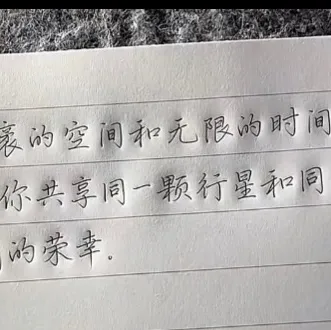 袤的空间和无限的时间
你共享同一颗行星和同
的荣幸.